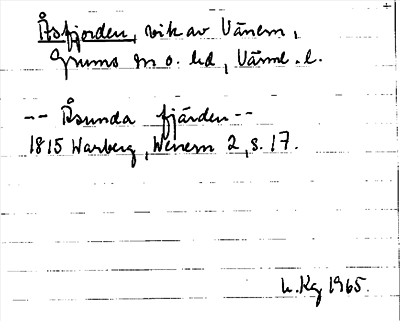 Åsfjorden, vik av Vänern,
Grums sn o. hd, Värml. l.
-- Åsunda fjärden --
1815 Warberg, Wenern 2, s. 17.
1965.